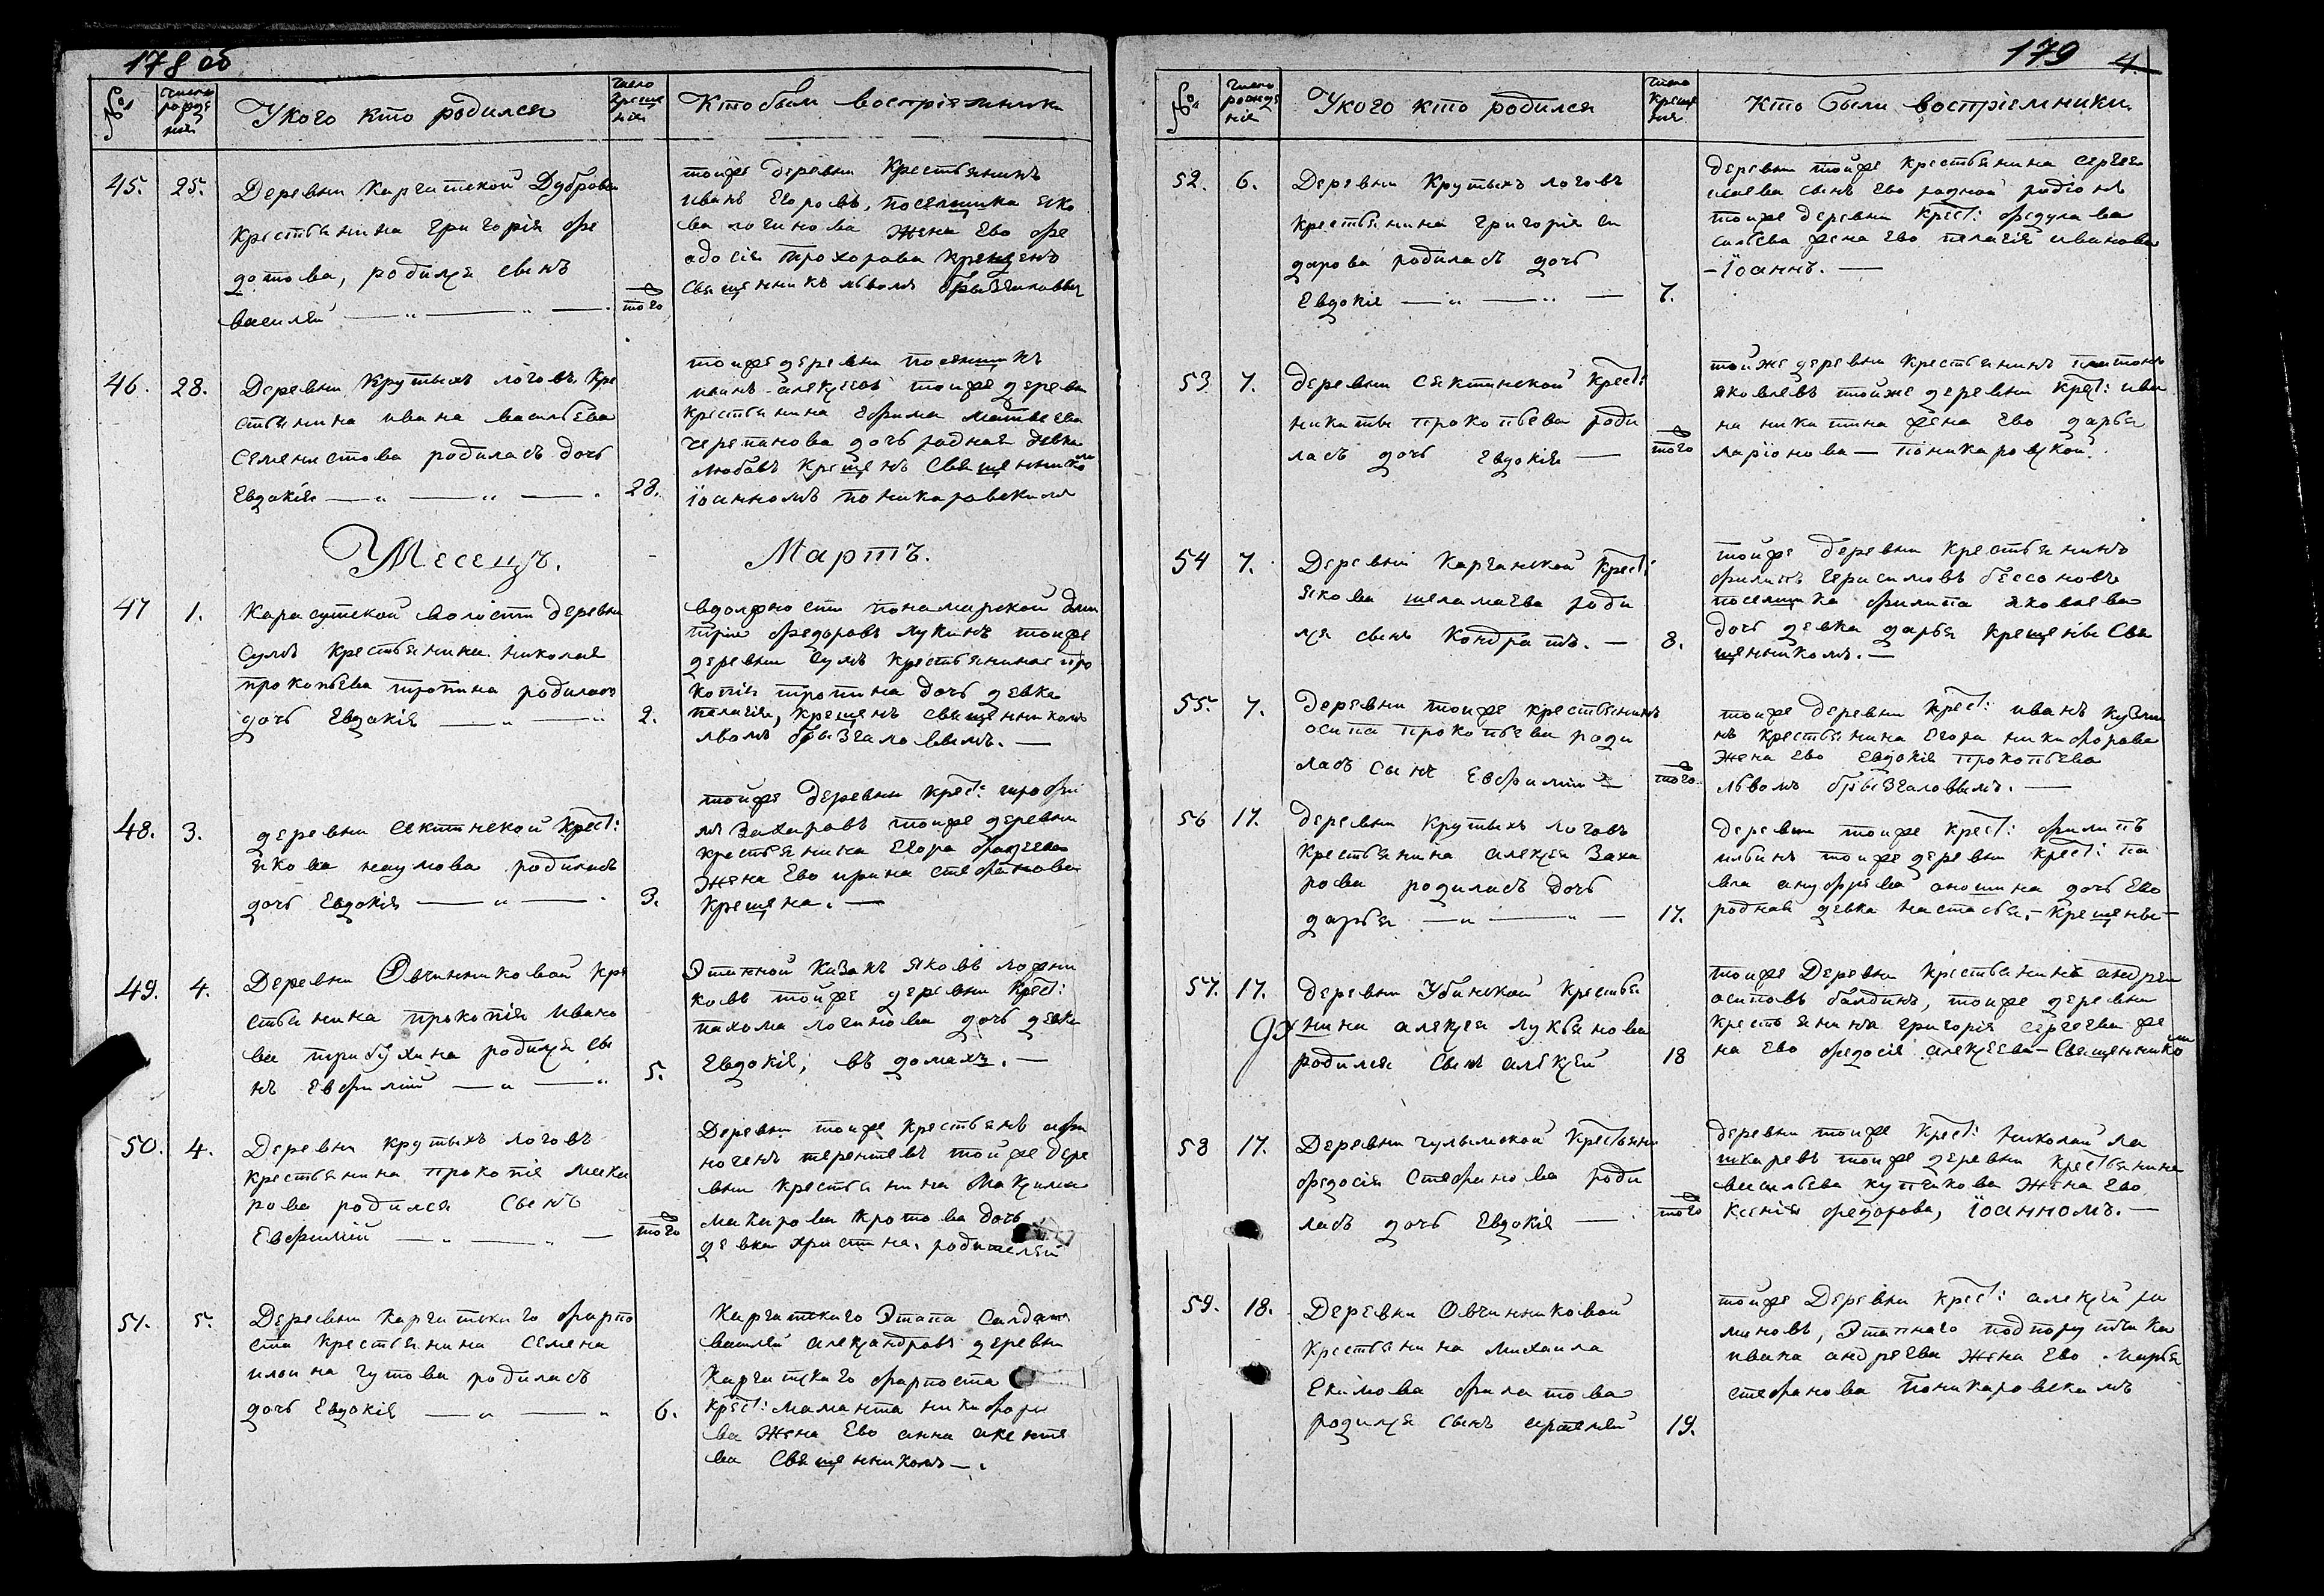 178 об
№ числа рожде ния У кого кто родился число креще ния Кто были воспріемники
45. 25. Деревни Каргатской Дубровы
крестьянина григорія фе
дотова, родился сынъ
василей
того
тойже деревни Крестьянинъ
иванъ Егоровъ, поселщика яко
ва логинова жена Ево фе
одосія прохорова крещенъ
священникъ львомъ брызгаловым
46. 28. Деревни Крутыхъ логовъ кре
стьянина ивана васильева
родилась дочь
Евдокія
28.
тойже деревни поселщикъ
иванъ алексеевъ тойже деревни
крестьянина Ефима матвеева
черепанова дочь родная девка
любовь крещенъ священником
іоанномъ поникаровскимъ
Месецъ. Мартъ.
47 1. Карасутской волости деревни
сумъ крестьянина николая
прокопьева тропина родилась
дочь Евдокія
2.
вдолжности понамарской дми
трій федоровъ лукинъ тойже
деревни сумъ крестьянина про
копія тропина дочь девка
пелагія, крещенъ священникомъ
львомъ брызгаловымъ.
48. 3. деревни сектинской крест:
якова наумова родилась
дочь Евдокія
3.
тойже деревни крест: трофи
мъ Захаровъ тойже деревни
крестьянина Егора фадеева
жена Ево ирина стефанова
Крещена.
49. 4. Деревни Овчинниковой кре
стьянина прокопія ивано
ва трибухина родился сы
нъ Евфимій
5.
Этапной Казакъ яковъ ложни
ковъ тойже деревни крест:
пахома логинова дочь девка
Евдокія, въ домахъ.
50. 4. Деревни крутыхъ логовъ
крестьянина прокопія мака
рова родился сынъ
Евфимій
того
Деревни тойже крестьянъ афи
ногенъ терентевъ тойже дере
вни крестьянина Максима
макарова кротова дочь
девка христина. родителей
51. 5. Деревни каргатскаго форпо
ста крестьянина семена
ильина гутова родилась
дочь Евдокія
6.
Каргатскаго Этапа салдатъ
василей александровъ деревни
Каргатскаго форпоста
крест: маманта никифоро
ва жена Ево анна акентя
ва священникомъ
179 4.
№ число рожде нія У кого кто родился число креще ния кто были воспріемники
52. 6. Деревни Крутыхъ логовъ
крестьянина григорія си
дорова родилась дочь
Евдокія
7.
деревни тойже крестьянина сергея
исаева сынъ Ево родной родіонъ
тойже деревни крест: федула ва
сильева жена Ево пелагія иванова
– Іоаннъ.
53 7. деревни сектинской крест:
никиты прокопьева роди
лась дочь Евдокія
того
тойже деревни крестьянинъ платонъ
яковлевъ тойже деревни крест: ива
на никитина жена Ево дарья
ларіонова – поникаровской.
54 7. Деревни Каргатской крест:
якова шеламаева роди
лся сынъ Кондратъ.
8.
тойже деревни крестьянинъ
филипъ герасимовъ бессоновъ
поселщика филипа яковлева
дочь девка дарья крещены свя
щенникомъ.
55. 7. Деревни тойже крестьянинъ
осипа прокопьева роди
лась сынъ Евфимій
того
тойже деревни крест: иванъ кузми
нъ крестьянина Егора никифорова
жена Ево Евдокія прокопьева
львомъ брызгаловымъ.
56 17. деревни крутыхъ логовъ
крестьянина алексея Заха
рова родилась дочь
дарья
17.
деревни тойже крест: филипъ
ильинъ тойже деревни крест: па
вла ануфрева аношина дочь Ево
родная девка настасья. – Крещены –
57. 17. деревни Убинской крестья
нина алексея лукьянова
родился сынъ алексей
18
тойже Деревни крестьянинъ андрей
осиповъ балдинъ, тойже деревни
крестьянина григорія сергеева же
на Ево федосія алексеева – священником
58 17. Деревни чулымской крестьяни
федосія Стефанова роди
лась дочь Евдокія
того
деревни тойже крест: николай ла
шкаревъ тойже деревни крестьянина
васильева купчикова жена Ево
ксенія федорова, Іоанномъ.
59. 18. Деревни Овчинниковой
крестьянина михаила
Екимова филатова
родился сынъ артемей
19.
тойже Деревни крест: алексей
Этапнаго подпорутчика
ивана андреева жена Ево марья
стефанова поникаровскимъ